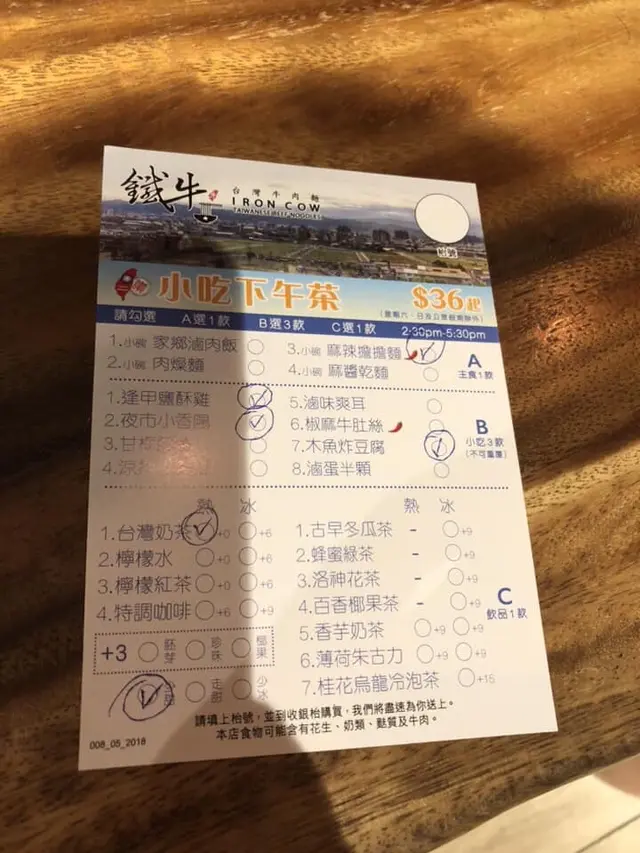 鐵牛
台灣牛肉麵
IRON COW
TAIWANESE BEEF NOODLES
枱號
小吃下午茶
$36起
(星期六、日及公眾假期除外)
請勾選 A選1款 B選3款 C選1款 2:30pm-5:30pm
1.小碗 家鄉滷肉飯
2.小碗 肉燥麵
3.小碗 麻辣擔擔麵
4.小碗 麻醬乾麵
A
主食1款
1.逢甲鹽酥雞
2.夜市小香腸
3.甘
4.涼
5.滷味爽耳
6.椒麻牛肚絲
7.木魚炸豆腐
8.滷蛋半顆
B
小吃3款
(不可重覆)
熱 冰
1.台灣奶茶 +0 +6
2.檸檬水 +0 +6
3.檸檬紅茶 +0 +6
4.特調咖啡 +6 +9
+3 胚芽 珍珠 椰果
少甜 走甜 少冰
熱 冰
1.古早冬瓜茶 - +9
2.蜂蜜綠茶 - +9
3.洛神花茶 - +9
4.百香椰果茶 - +9
5.香芋奶茶 +9 +9
6.薄荷朱古力 +9 +9
7.桂花烏龍冷泡茶 +15
C
飲品1款
請填上枱號，並到收銀枱購買，我們將盡速為你送上。
本店食物可能含有花生、奶類、麩質及牛肉。
008_05_2018